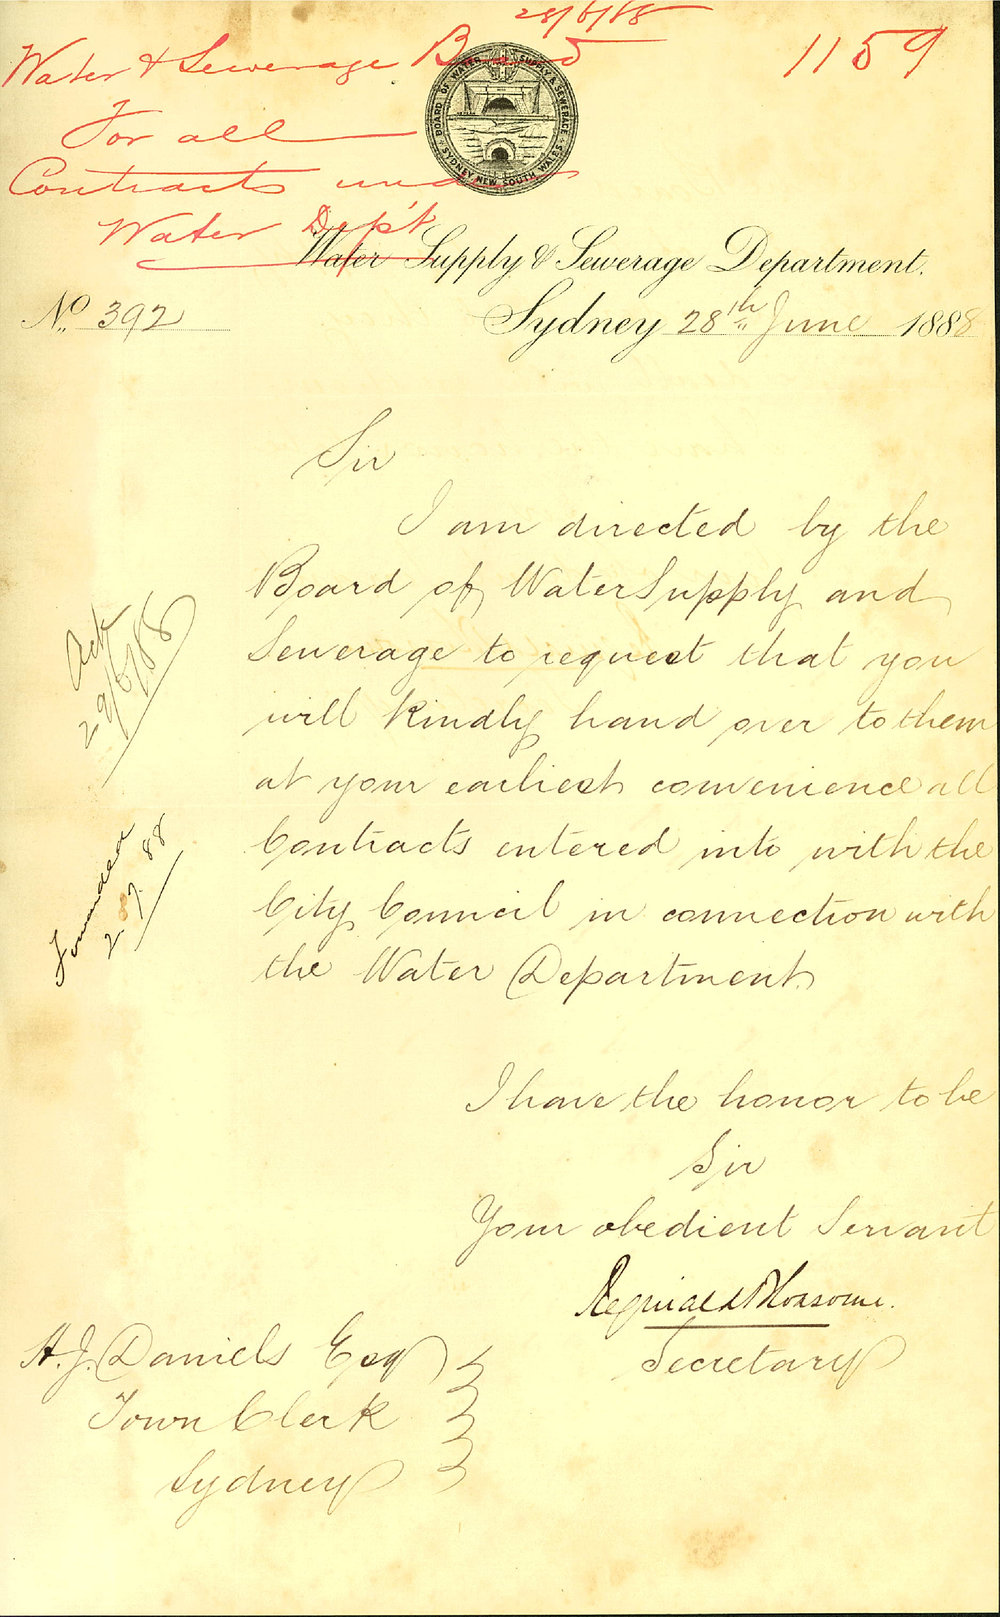 28/6/88
Water & Sewerage Board
1159
For all
Contracts under
Water Dep't
BOARD OF WATER SUPPLY & SEWERAGE
SYDNEY NEW SOUTH WALES
Water Supply & Sewerage Department.
No. 392
Sydney 28th June 1888
Sir
I am directed by the
Board of Water Supply and
Sewerage to request that you
will kindly hand over to them
at your earliest convenience all
Contracts entered into with the
City Council in connection with
the Water Department.
Ack
29/6/88
Forwarded
2.7.88
I have the honor to be
Sir
Your obedient Servant
Reginald
Secretary
H. J. Daniels Esq
Town Clerk
Sydney